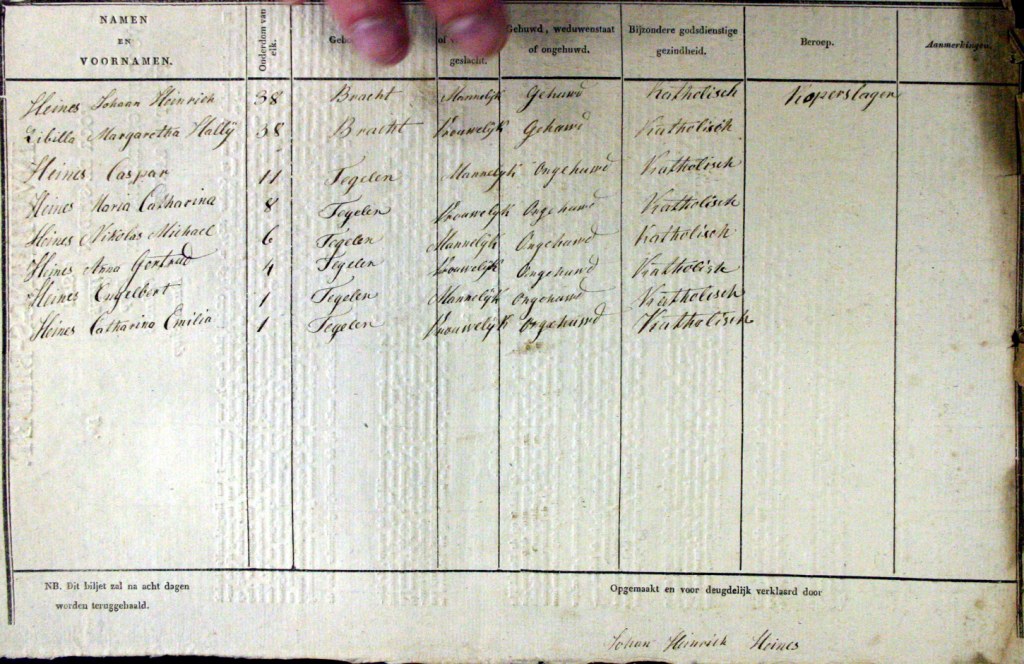 NAMEN EN VOORNAMEN. Ouderdom van elk. Gehuwd, weduwenstaat of ongehuwd. Bijzondere godsdienstige gezindheid. Beroep. Aanmerkingen.
geslacht.
Heines Johann Heinrich 38 Bracht Mannelijk Gehuwd Katholisch Koperslager
Sibilla Margaretha Hally 38 Bracht Vrouwelijk Gehuwd Katholisch
Heines Caspar 11 Tegelen Mannelijk Ongehuwd Katholisch
Heines Maria Catharina 8 Tegelen Vrouwelijk Ongehuwd Katholisch
Heines Nikolas Michael 6 Tegelen Mannelijk Ongehuwd Katholisch
Heines Anna Gertrud 4 Tegelen Vrouwelijk Ongehuwd Katholisch
Heines Engelbert 1 Tegelen Mannelijk Ongehuwd Katholisch
Heines Catharina Emilia 1 Tegelen Vrouwelijk Ongehuwd Katholisch
NB. Dit biljet zal na acht dagen
worden teruggehaald.
Opgemaakt en voor deugdelijk verklaard door
Johan Heinrich Heines